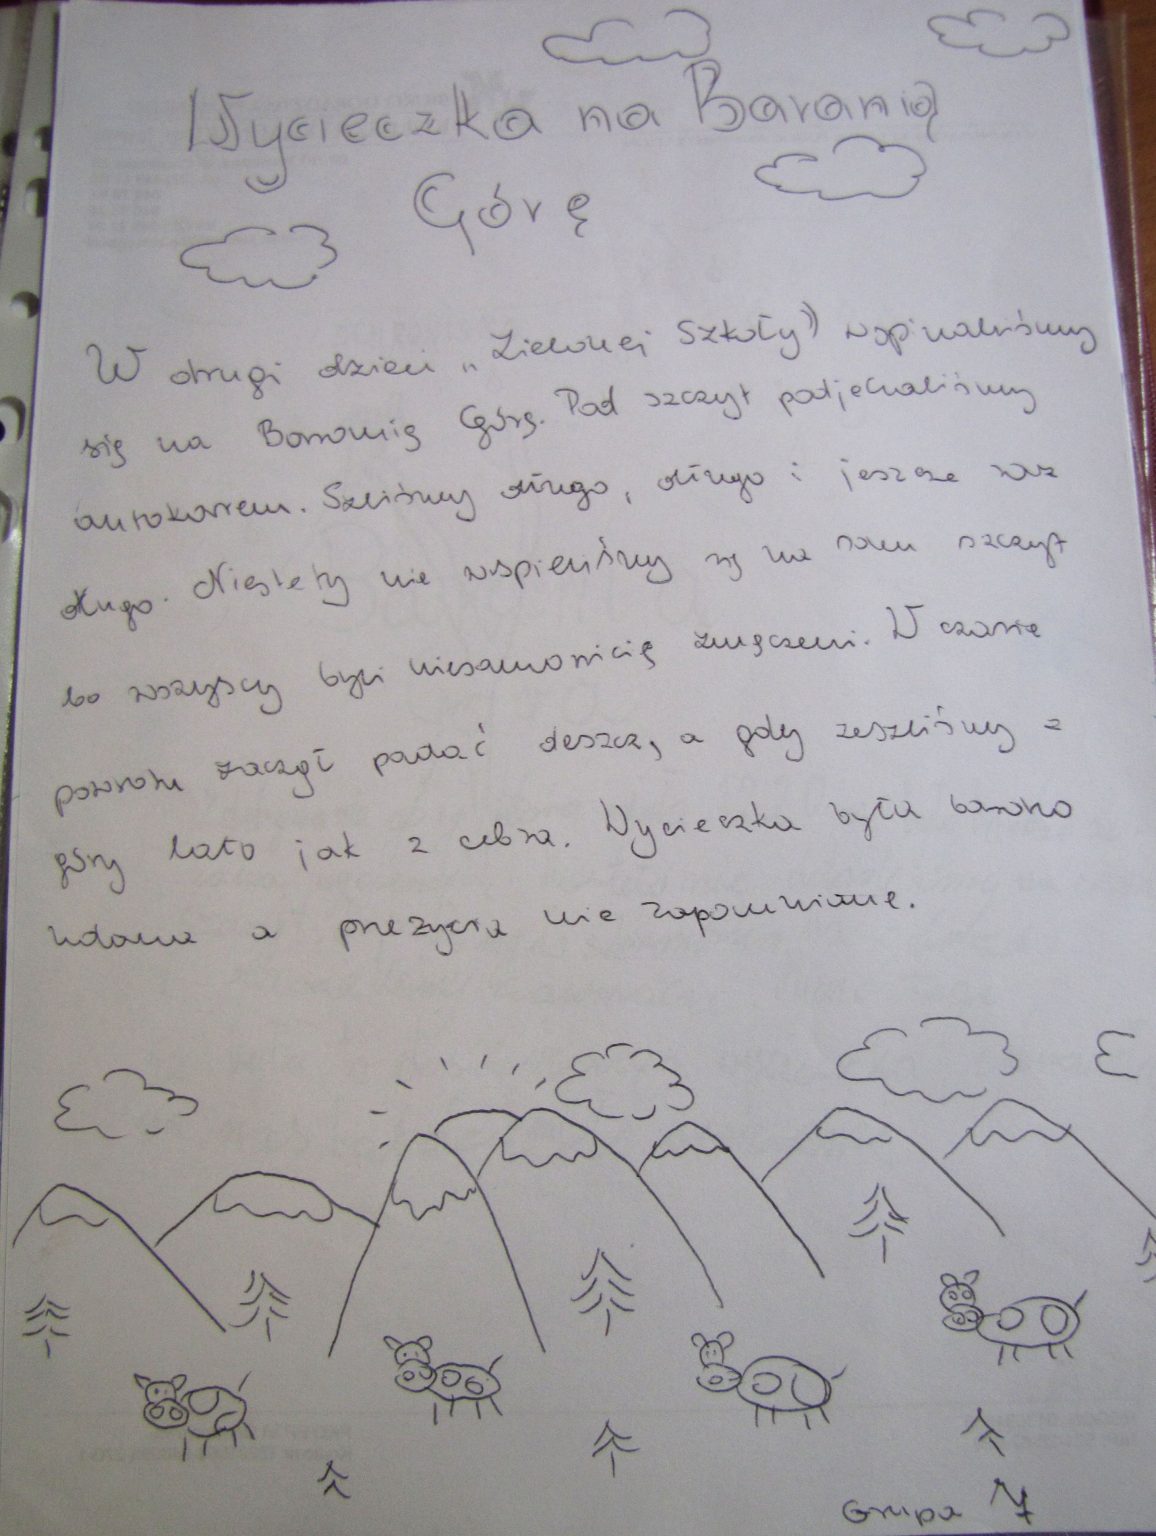 Wycieczka na Baranią
Górę
W drugi dzień „Zielonej Szkoły” wspinaliśmy
się na Baranią Górę. Pod szczyt podjechaliśmy
autokarem. Szliśmy długo, długo i jeszcze raz
długo. Niestety nie wspieliśmy się na sam szczyt
bo wszyscy byli niesamowicię zmęczeni. W czasie
powrotu zaczął padać deszcz, a gdy zeszliśmy z
góry lało jak z cebra. Wycieczka była bardzo
udana a przeżycia nie zapomniane.
Grupa